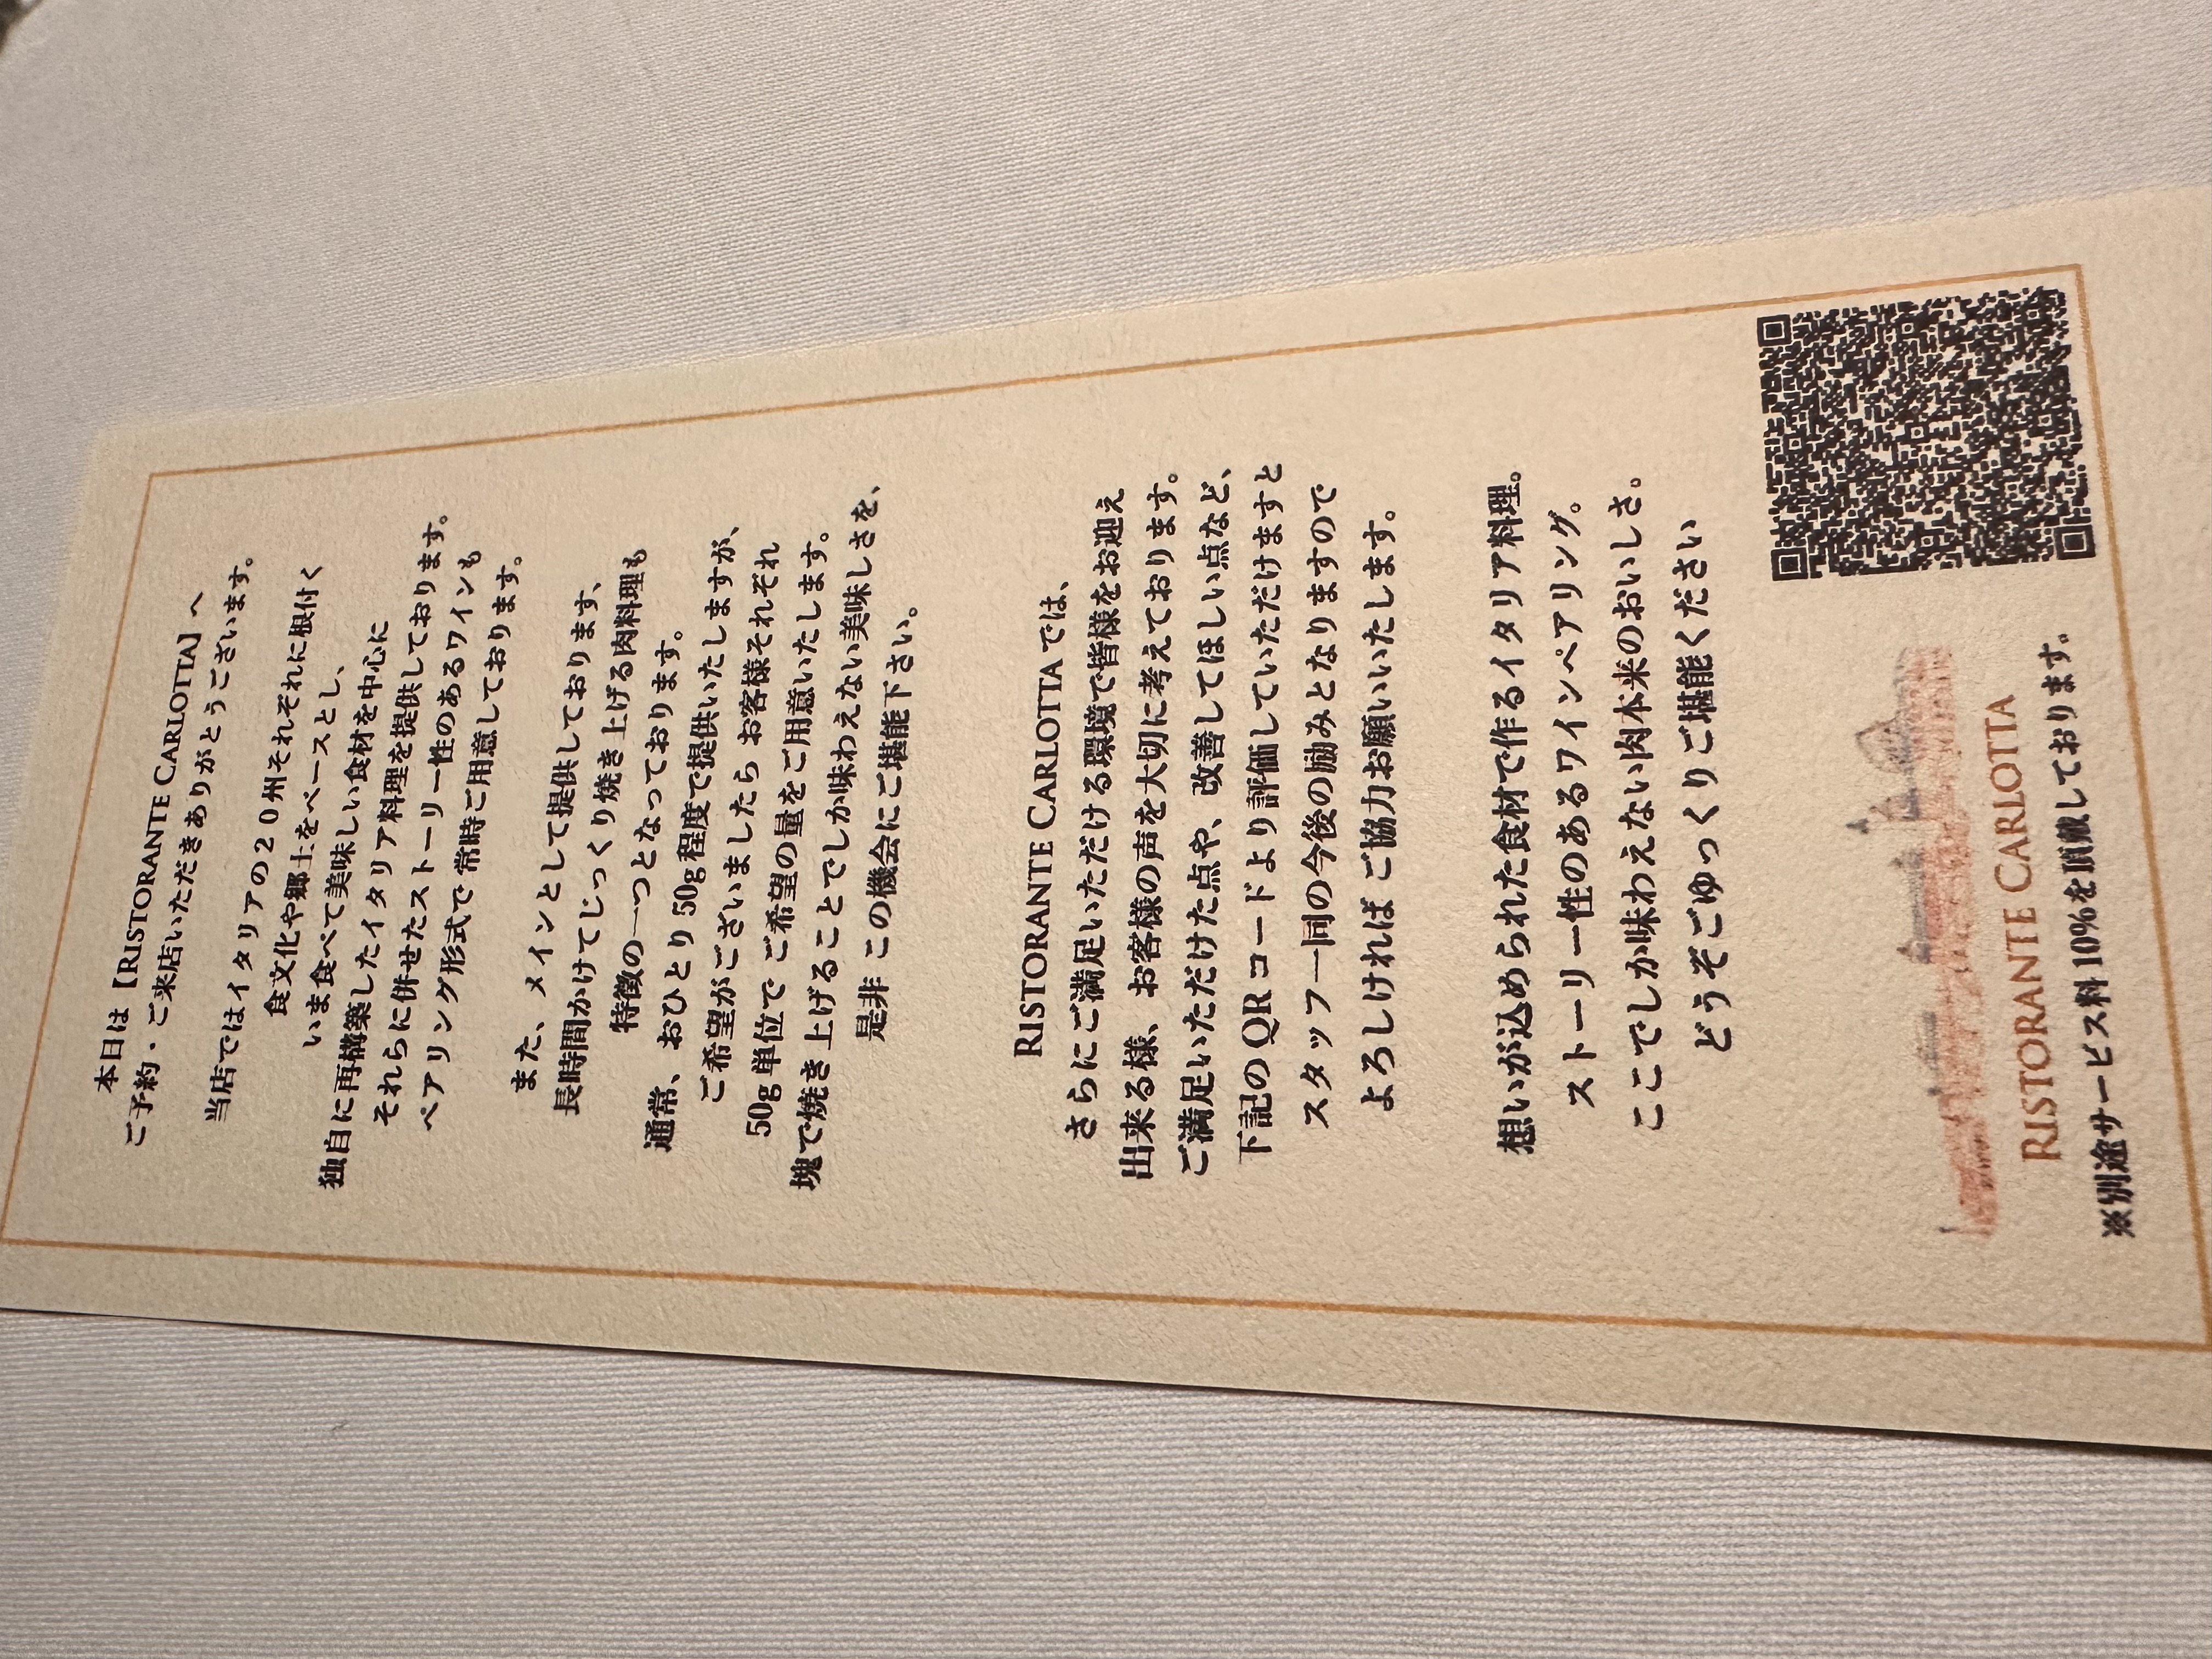 本日は【RISTORANTE CARLOTTA】へ
ご予約・ご来店いただきありがとうございます。
当店ではイタリアの20州それぞれに根付く
食文化や郷土をベースとし、
いま食べて美味しい食材を中心に
独自に再構築したイタリア料理を提供しております。
それらに併せたストーリー性のあるワインも
ペアリング形式で常時ご用意しております。
また、メインとして提供しております、
長時間かけてじっくり焼き上げる肉料理も
特徴の一つとなっております。
通常、おひとり50g程度で提供いたしますが、
ご希望がございましたら お客様それぞれ
50g単位で ご希望の量をご用意いたします。
塊で焼き上げることでしか味わえない美味しさを、
是非 この機会にご堪能下さい。
RISTORANTE CARLOTTAでは、
さらにご満足いただける環境で皆様をお迎え
出来る様、お客様の声を大切に考えております。
ご満足いただけた点や、改善してほしい点など、
下記のQRコードより評価していただけますと
スタッフ一同の今後の励みとなりますので
よろしければ ご協力お願いいたします。
想いが込められた食材で作るイタリア料理。
ストーリー性のあるワインペアリング。
ここでしか味わえない肉本来のおいしさ。
どうぞごゆっくりご堪能ください
RISTORANTE CARLOTTA
※別途サービス料10%を頂戴しております。